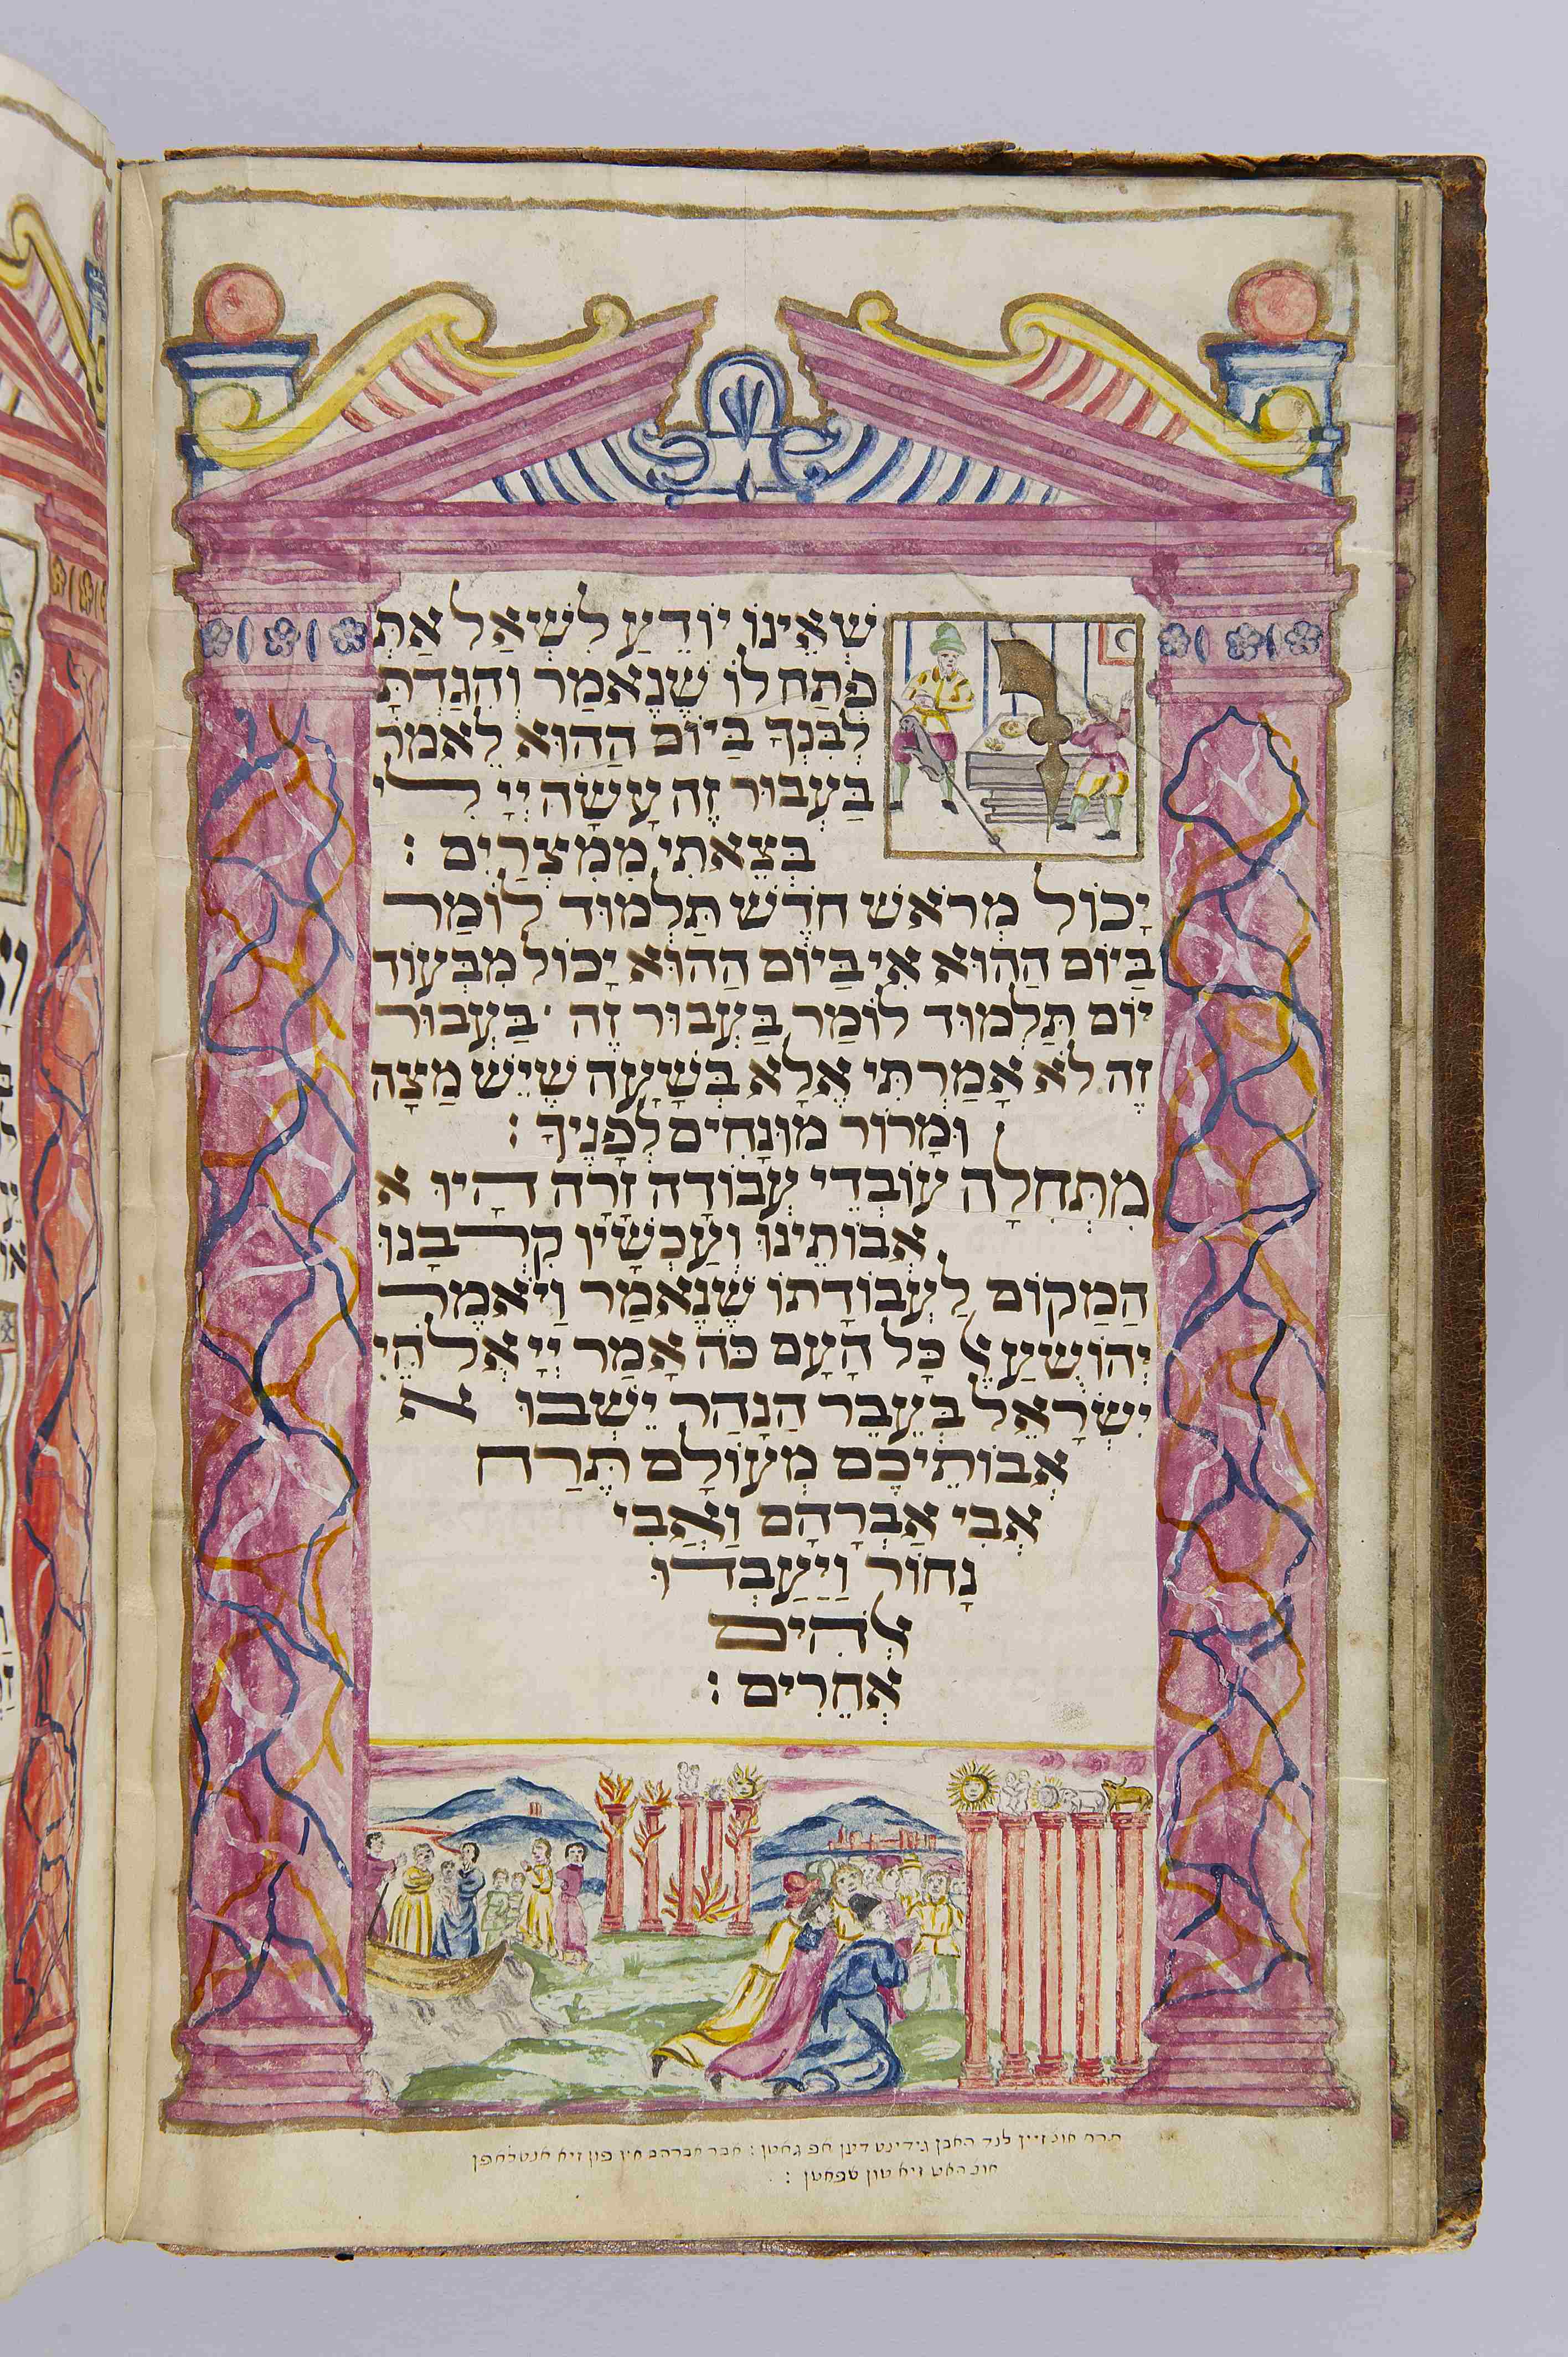 שֶׁאֵינוֹ יוֹדֵעַ לִשְׁאַל אַתְּ
פְּתַח לוֹ שֶׁנֶאֱמַר וְהִגַדְתָּ
לְבִנְךָ בַּיוֹם הַהוּא לֵאמֹר
בַּעֲבוּר זֶה עָשָׂה יְיָ לִי
בְּצֵאתִי מִמִצְרַיִם :
יָכוֹל מֵרֹאשׁ חֹדֶשׁ תַּלְמוּד לוֹמַר
בַּיוֹם הַהוּא אִי בַּיוֹם הַהוּא יָכוֹל מִבְּעוֹד
יוֹם תַּלְמוּד לוֹמַר בַּעֲבוּר זֶה · בַּעֲבוּר
זֶה לֹא אָמַרְתִּי אֶלָא בְּשָׁעָה שֶׁיֵשׁ מַצָה
וּמָרוֹר מוּנָחִים לְפָנֶיךָ :
מִתְּחִלָה עוֹבְדֵי עֲבוֹדָה זָרָה הָיוּ א
אֲבוֹתֵינוּ וְעַכְשָׁיו קֵרְבָנוּ
הַמָקוֹם לַעֲבוֹדָתוֹ שֶׁנֶאֱמַר וַיֹאמֶר
יְהוֹשֻׁעַ אֶל כָּל הָעָם כֹּה אָמַר יְיָ אֱלֹהֵי
יִשְׂרָאֵל בְּעֵבֶר הַנָהָר יָשְׁבוּ א
אֲבוֹתֵיכֶם מֵעוֹלָם תֶּרַח
אֲבִי אַבְרָהָם וַאֲבִי
נָחוֹר וַיַעַבְדוּ
אֱלֹהִים
אֲחֵרִים :
תרח אונ זיין לנד האבן גידינט דען אפ גאטן : אבר אברהם איז פון זיא אנטלאפן
אונ האט זיא טון שפאטן :